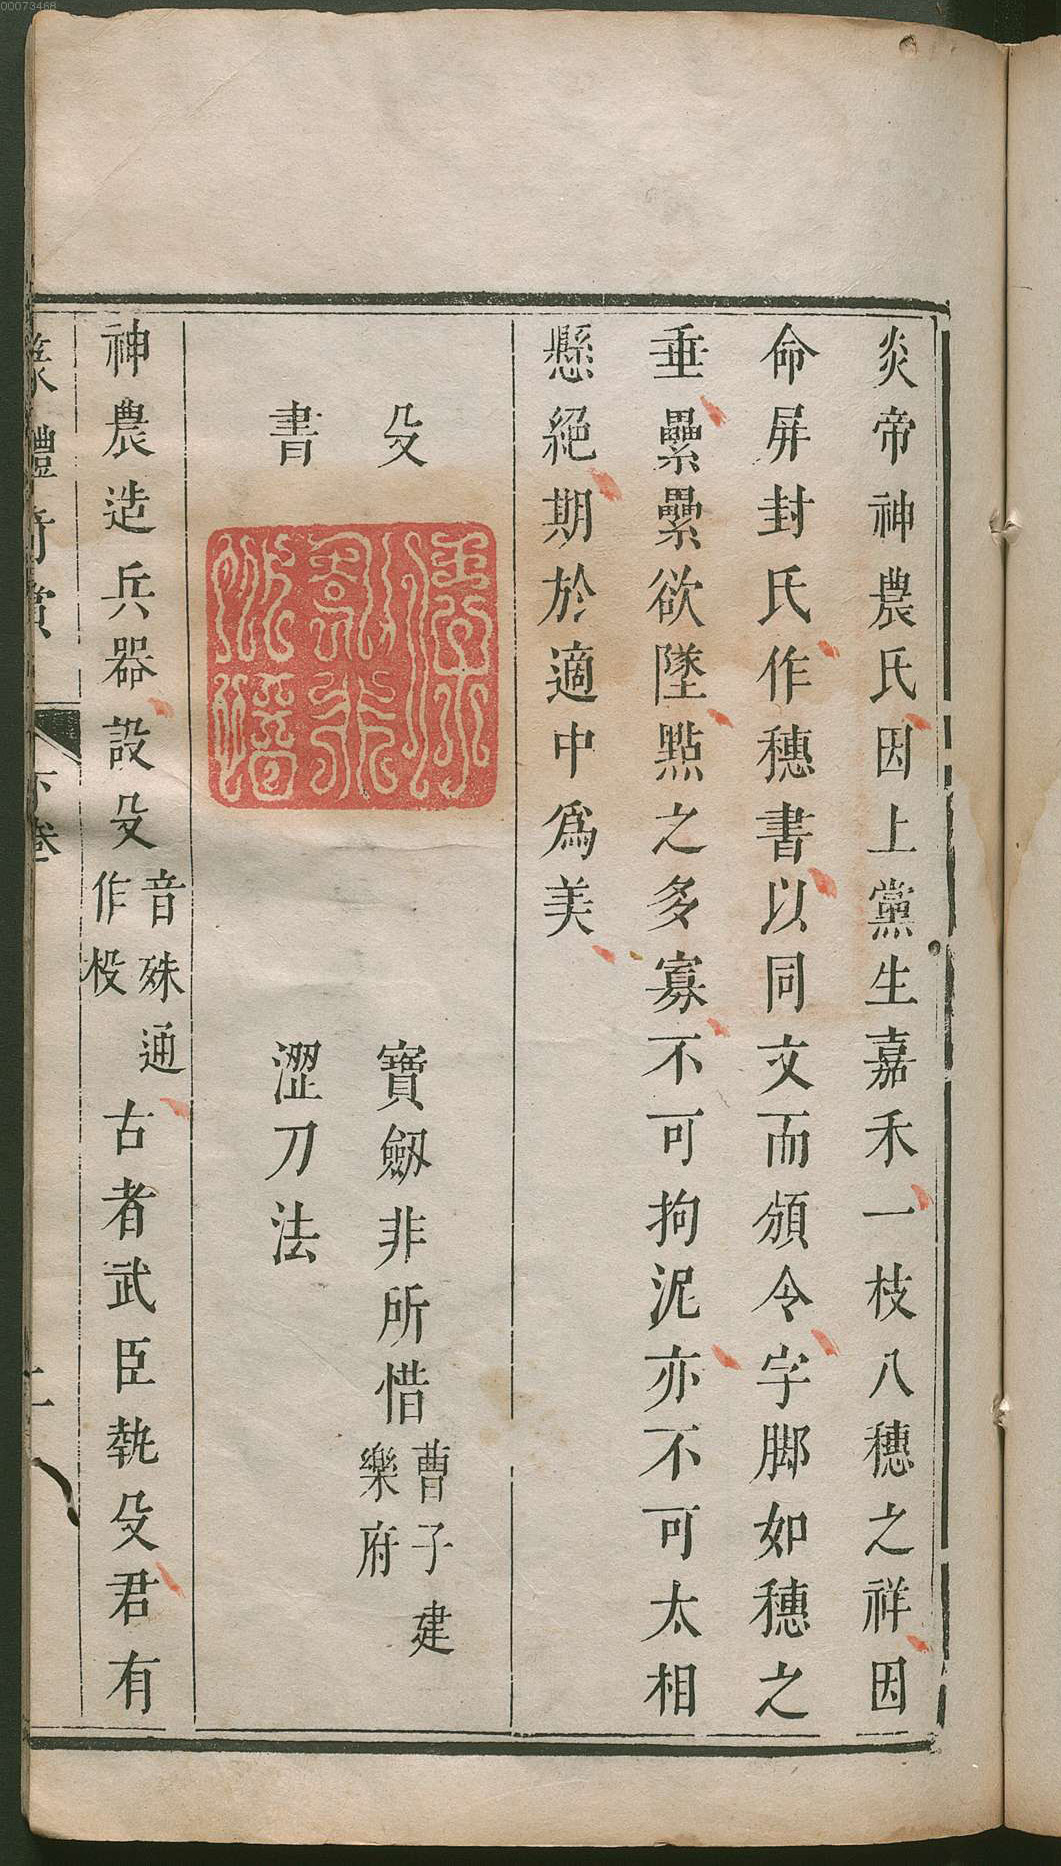 00073468
炎帝神神農氏因上黨生嘉禾一枝八穗之祥因
命屏封氏作穗書以同文而頒令字脚如穗之
垂纍纍欲墜點之多寡不可拘泥亦不可太相
懸絕期於適中爲美
殳
書
寶劔非所惜
曹子建
樂府
澀刀法
神農造兵器設殳
音殊通
作杸
古者武臣執殳君有
下卷